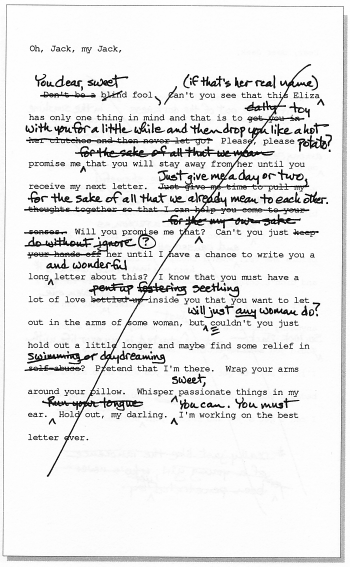 Oh, Jack, my Jack,
You dear, sweet (if that's her real name)
Don't be a blind fool, Can't you see that this Eliza
dally toy
has only one thing in mind and that is to get you in
with you for a little while and then drop you like a hot
her clutches and then never let go? Please, please potato?
for the sake of all that we mean
promise me that you will stay away from her until you
Just give me a day or two,
receive my next letter. Just give me time to pull my
for the sake of all that we already mean to each other.
thoughts together so that I can help you come to your
for the my own sake
senses. Will you promise me that? Can't you just keep
do without, ignore (?)
your hands off her until I have a chance to write you a
and wonderful
long letter about this? I know that you must have a
pent up festering seething
lot of love bottled up inside you that you want to let
will just any woman do?
out in the arms of some woman, but couldn't you just
hold out a little longer and maybe find some relief in
swimming or daydreaming
self-abuse? Pretend that I'm there. Wrap your arms
sweet,
around your pillow. Whisper passionate things in my
Run your tongue You can. You must
ear. Hold out, my darling. I'm working on the best
letter ever.